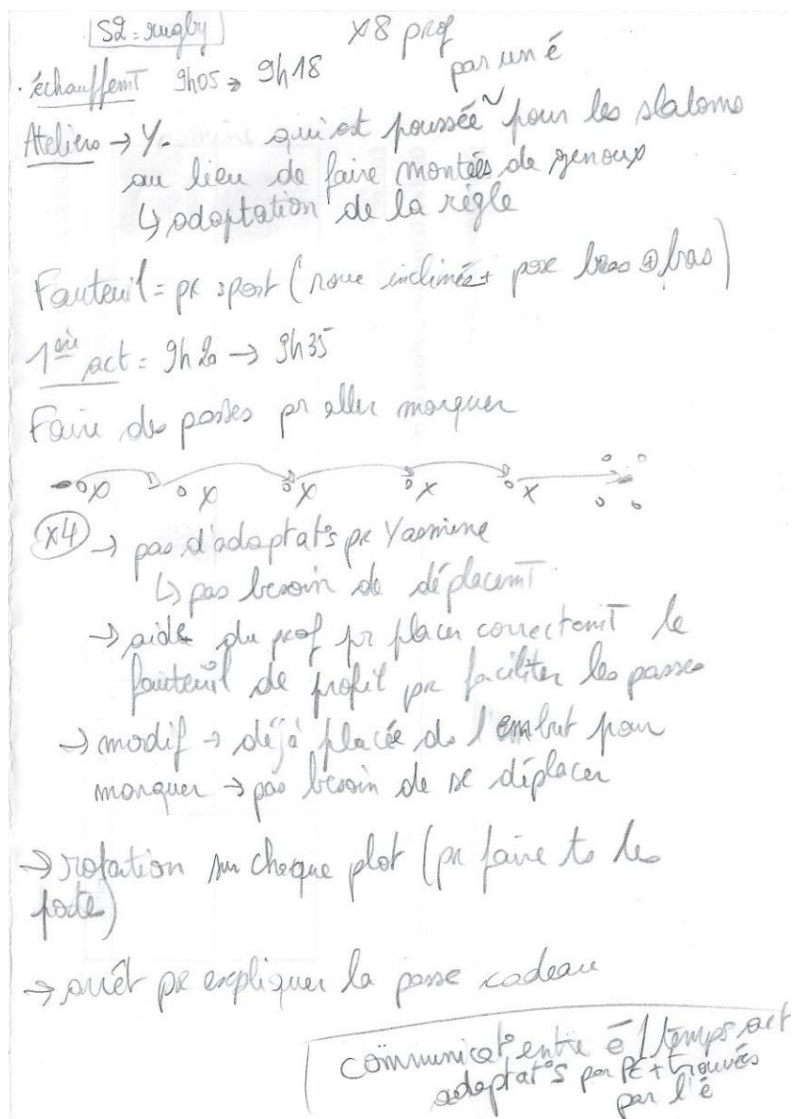 S2 : rugby
x8 prof
par un é
. échauffemT 9h05 → 9h18
Ateliers → Y. qui est poussée pour les slaloms
au lieu de faire montées de genoux
↳ adaptation de la règle
Fauteuil = pr sport (roue inclinées + pose bras ⊕ bas)
1ère act = 9h20 → 9h35
Faire des passes pr aller marquer
o x o x o x o x o x o o o o
x4 → pas d'adaptat°s pr Yasmine
↳ pas besoin de déplacemT
→ aide du prof pr placer correctemT le
fauteuil de profil pr faciliter les passes
→ modif → déjà placée ds l'embut pour
marquer → pas besoin de se déplacer
→ rotation sur chaque plot (pr faire ts les
poste)
→ arrêt pr expliquer la passe cadeau
communicat° entre é / temps act
adaptat°s par PE + trouvés
par l'é